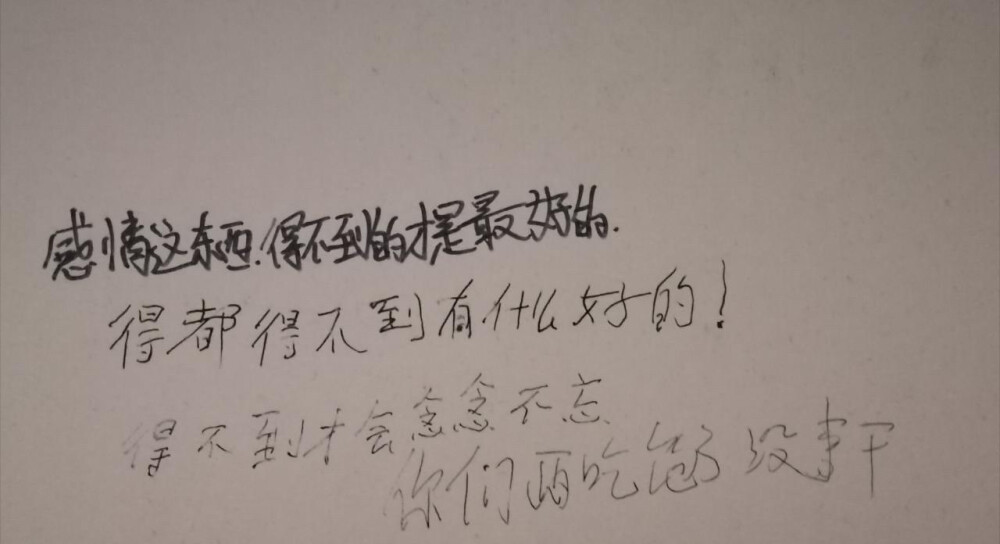 感情这东西.得不到的才是最好的.
得都得不到有什么好的!
得不到才会念念不忘
你们两吃饱了没事干